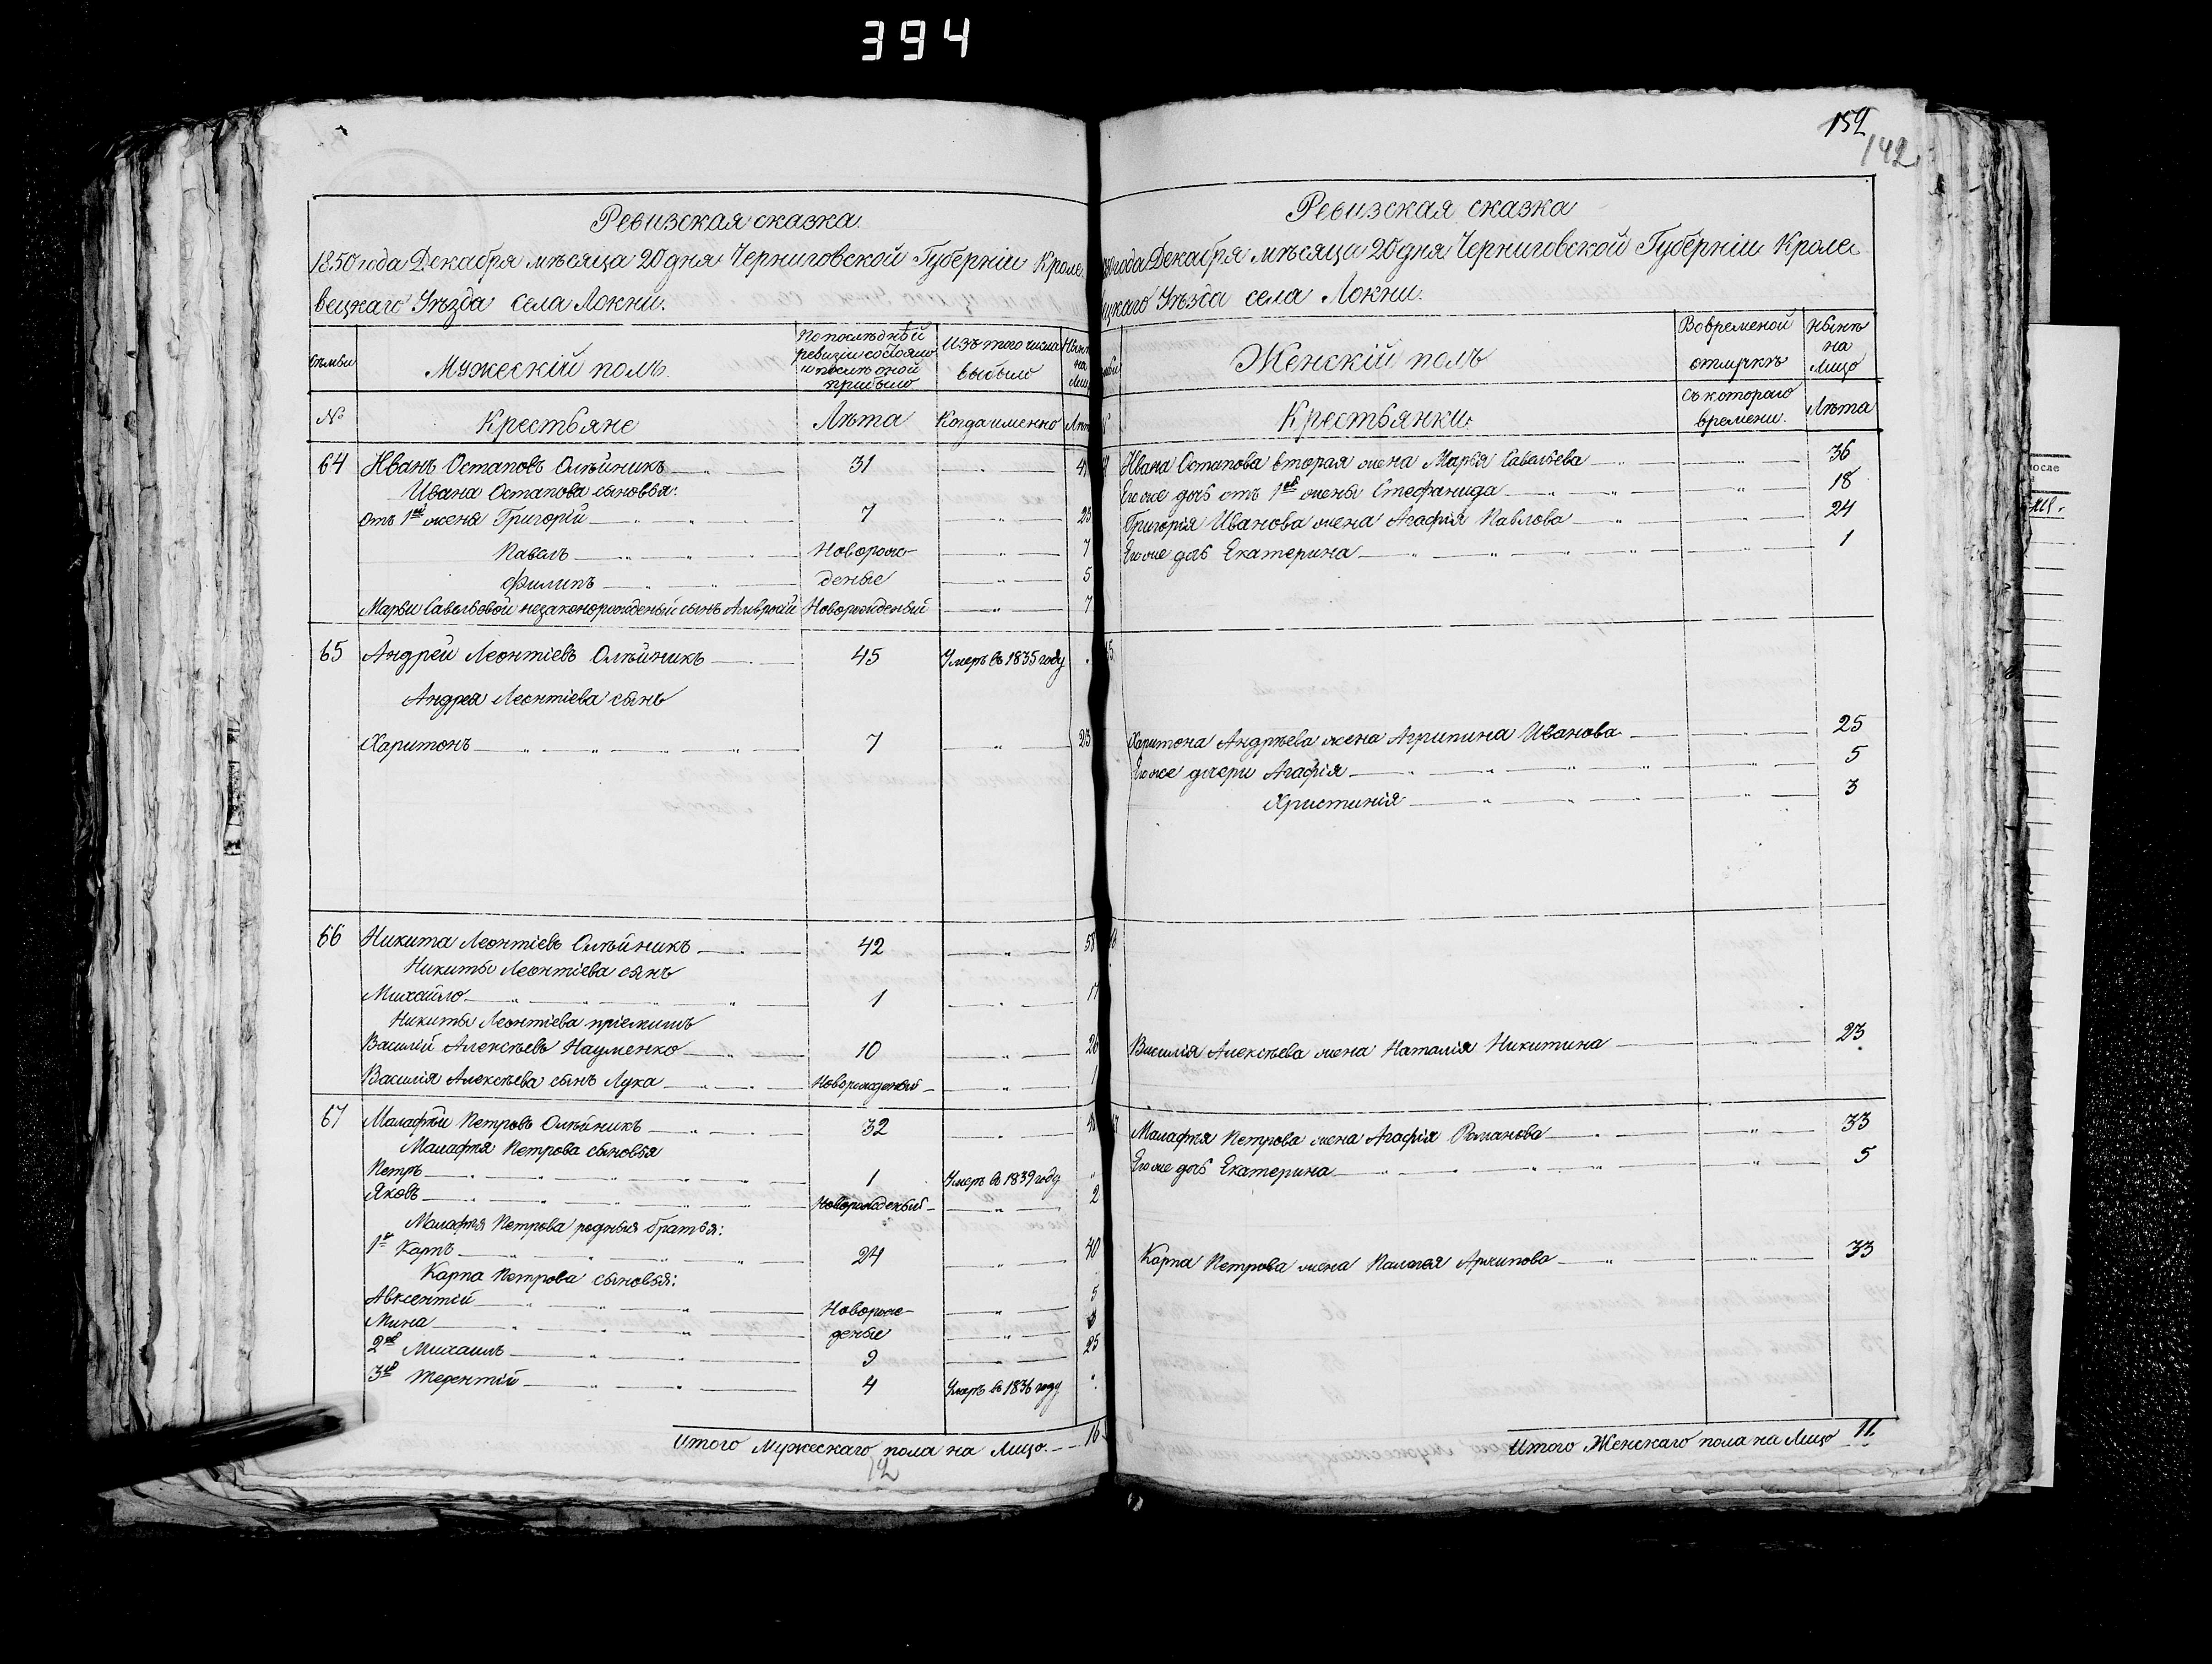 394
152
142
Ревизская сказка.
1850 года Декабря мѣсяца 20 дня Черниговской Губерніи Кроле
вецкаго Уѣзда села Локни.
Мужескій полъ.
По послѣдней ревизіи состояло и послѣ оной прибыло
Изъ того числа выбыло
на Лицо
№
Крестьяне
Лѣта
Когда именно
64 Иванъ Остаповъ Олѣйникъ 31
Ивана Остапова сыновья:
Отъ 1й жены Григорій 7
Павалъ Новорож- 7
Филипъ деные 5
Марьи Савельевой незаконорожденый сынъ Новорожденый 7
65 Андрей Леонтіевъ Олѣйникъ 45 Умеръ въ 1835 году
Андрея Леонтіева сынъ
Харитонъ 7 23
66 Никита Леонтіевъ Олѣйникъ 42 58
Никиты Леонтіева сынъ
Михайло 1 17
Никиты Леонтіева пріемишъ
Василій Алексѣевъ Науменко 10 26
Василія Алексѣева сынъ Лука Новорожденый 1
67 Малафѣй Петровъ Олѣйникъ 32
Малафѣя Петрова сыновья
Петръ 1 Умеръ въ 1839 году
Яковъ Новорожденый 2
Малафѣя Петрова родныя братья:
1й Карпъ 24 40
Карпа Петрова сыновья:
Авксентій Новорож- 5
Мина деные 3
2й Михаилъ 9 25
3й Терентій 4 Умеръ въ 1836 году
Итого Мужескаго пола на Лицо 16
12
Ревизская сказка
года Декабря мѣсяца 20 дня Черниговской Губерніи Кроле
цкаго Уѣзда села Локни.
Женскій полъ
Во временой отлучкѣ
Нынѣ на Лицо
Крестьянки
Съ котораго времени.
Лѣта
Ивана Остапова вторая жена Марья Савельева 36
Его же дочь отъ 1й жены Стефанида 18
Григорія Иванова жена Агафія Павлова 24
Его же дочь Екатерина 1
Харитона Андрѣева жена Агрипина Иванова 25
Его же дочери Агафія 5
Христинія 3
Василія Алексѣева жена Наталія Никитина 23
Малафѣя Петрова жена Агафія Романова 33
Его же дочь Екатерина 5
Карпа Петрова жена Палагея Архипова 33
Итого Женскаго пола на Лицо 11.